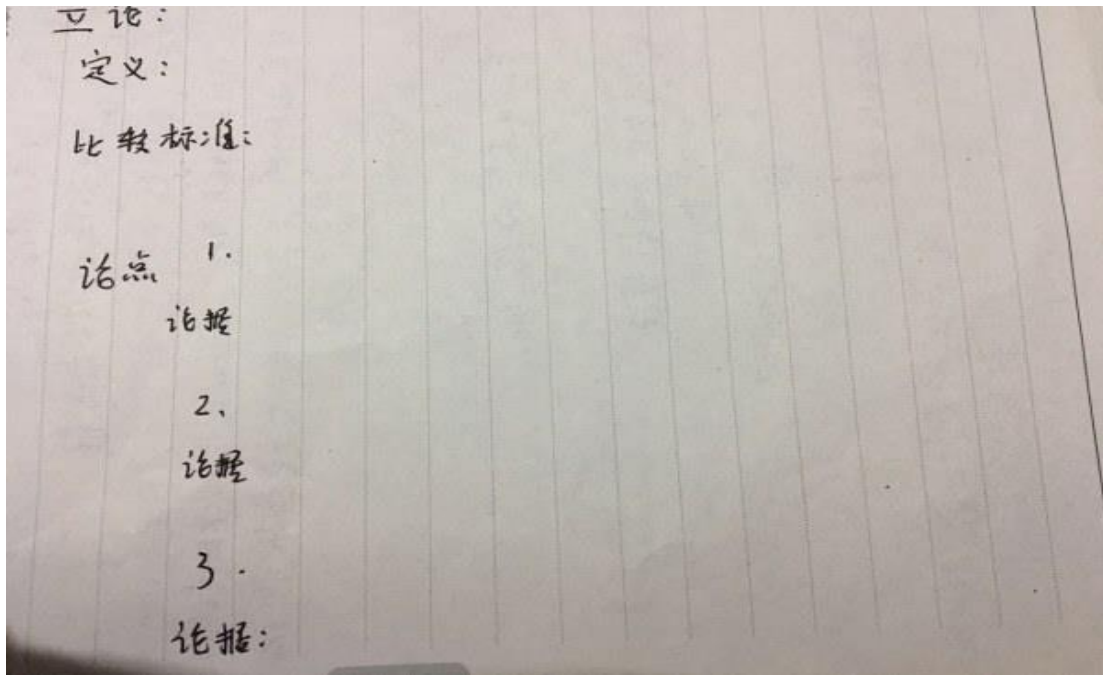 立论：
定义：
比较标准：
论点 1.
论据
2、
论据
3.
论据：